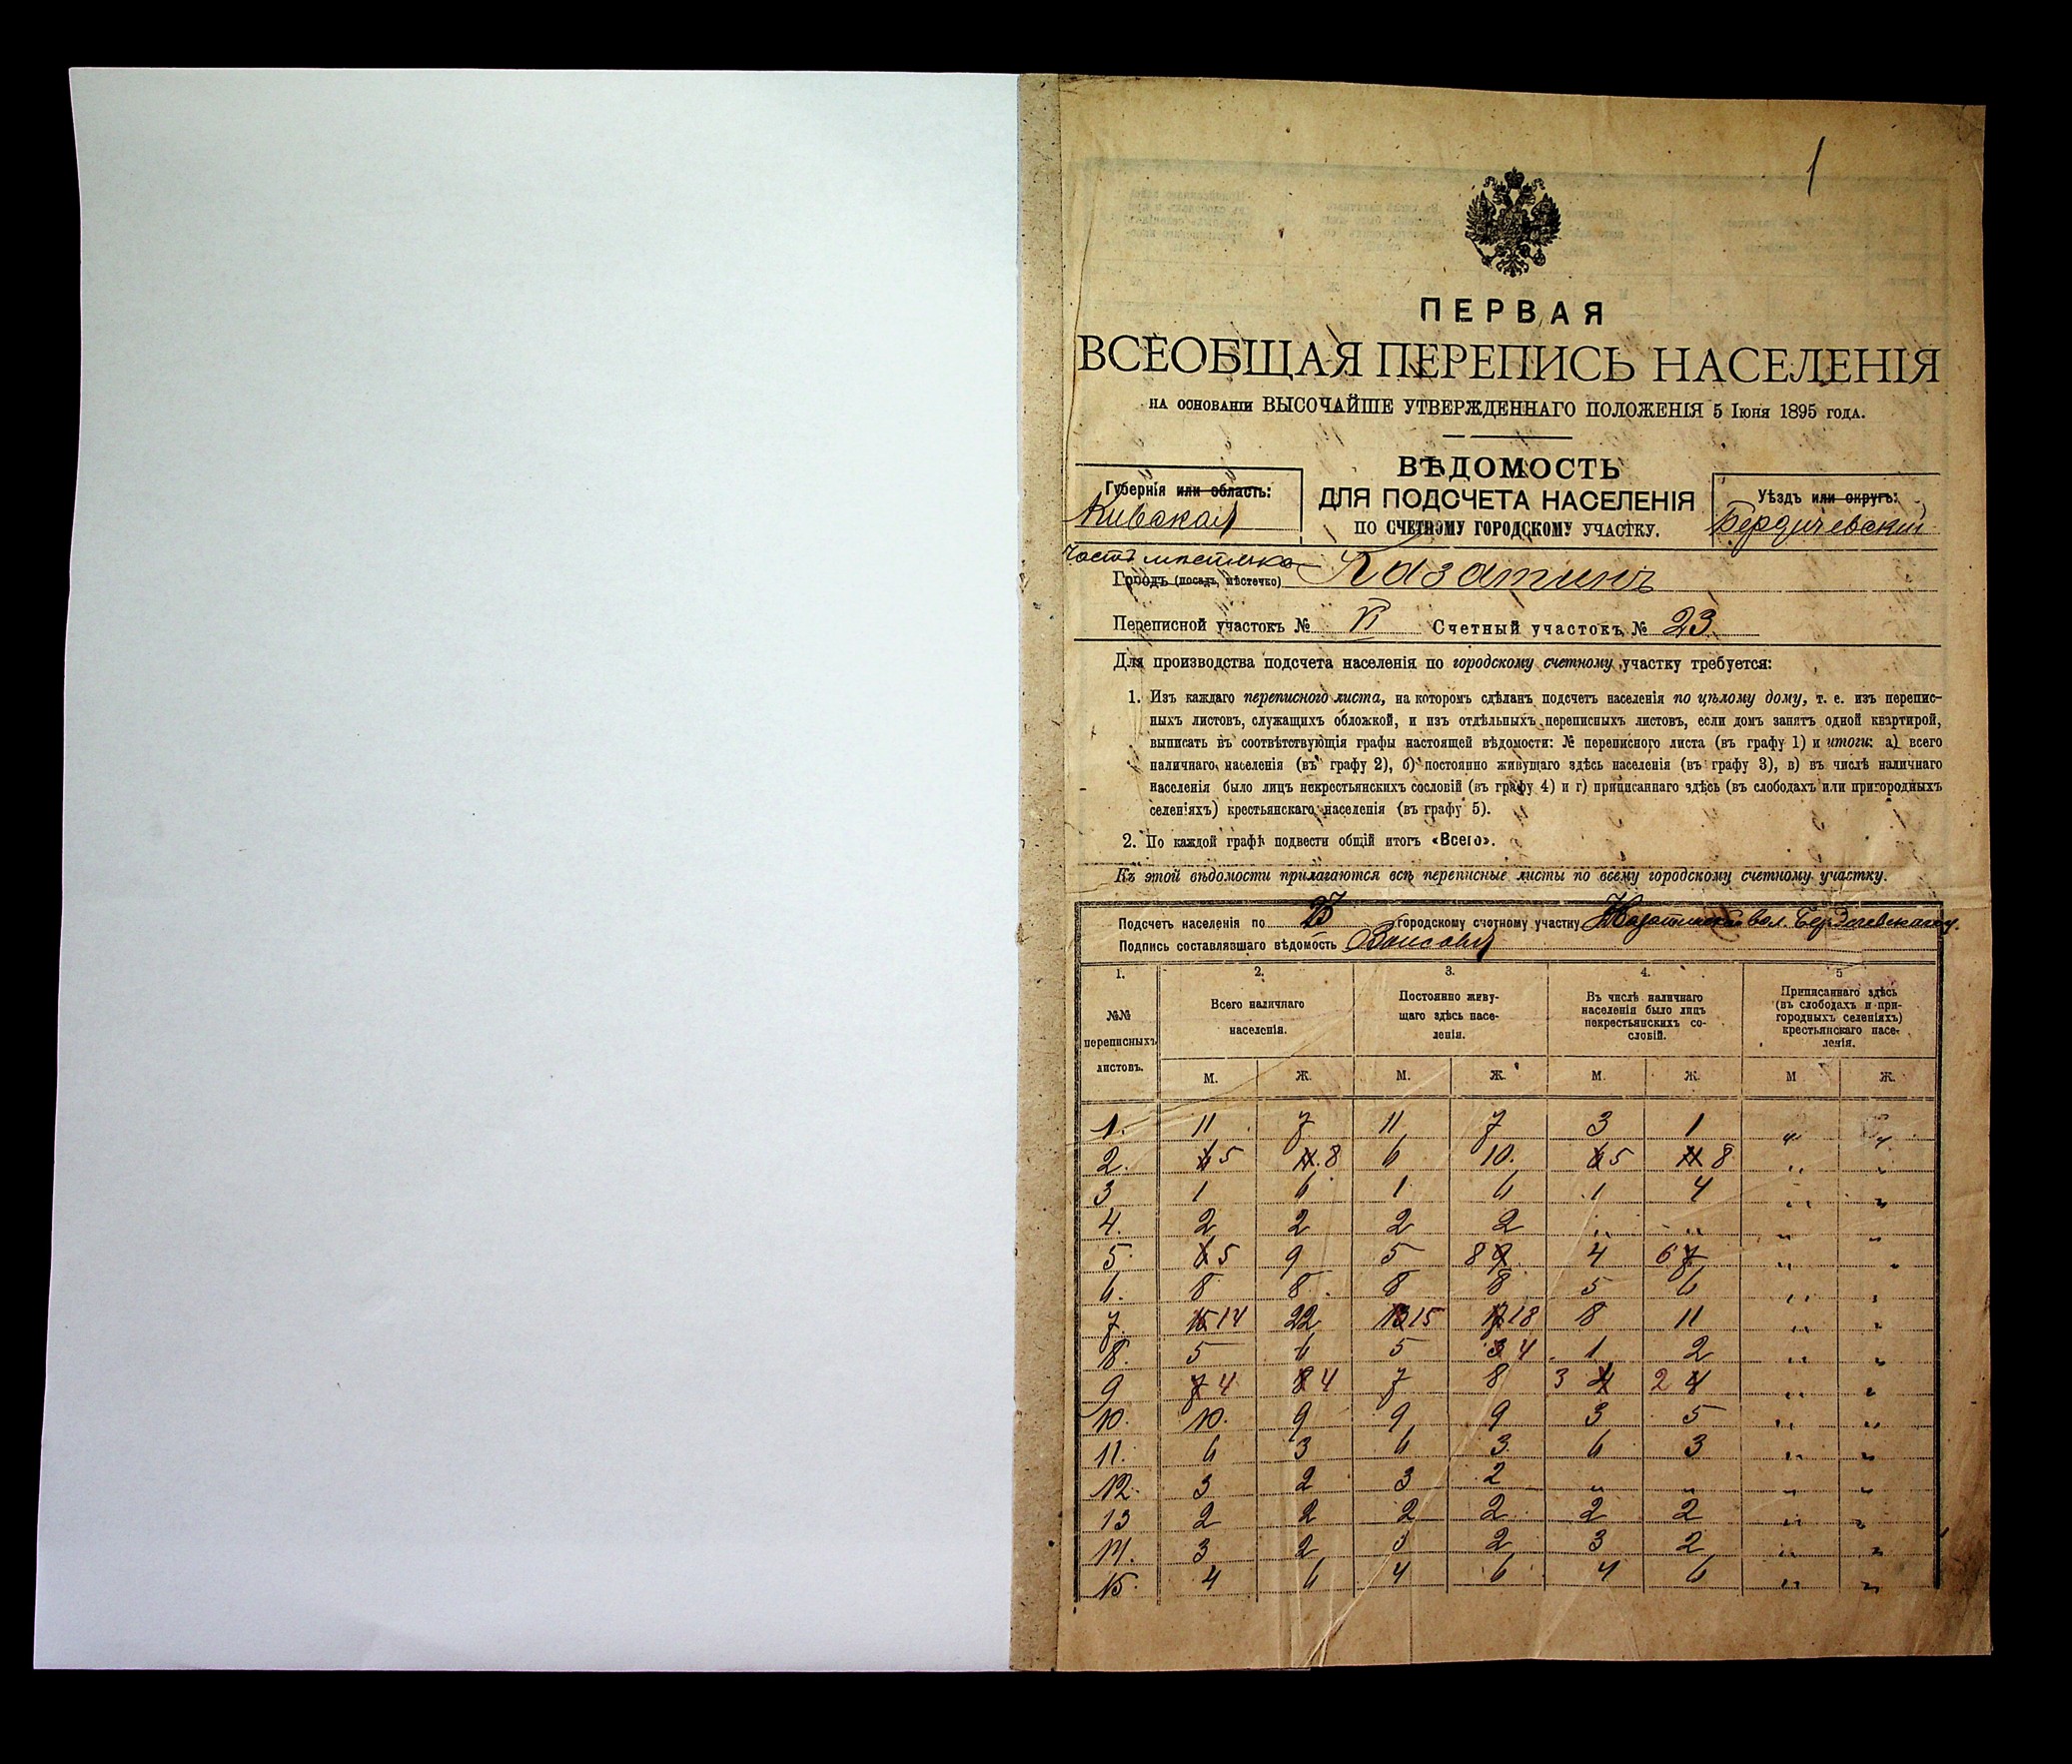 1
ПЕРВАЯ
ВСЕОБЩАЯ ПЕРЕПИСЬ НАСЕЛЕНІЯ
НА ОСНОВАНІИ ВЫСОЧАЙШЕ УТВЕРЖДЕННАГО ПОЛОЖЕНІЯ 5 Іюня 1895 ГОДА.
ВѢДОМОСТЬ
ДЛЯ ПОДСЧЕТА НАСЕЛЕНІЯ
ПО СЧЕТНОМУ ГОРОДСКОМУ УЧАСТКУ.
Губернія или область:
Кіевская
Уѣздъ или округъ:
Бердичевскій
Часть мѣстечка
Городъ (посадъ, мѣстечко) Казатинъ
Переписной участокъ № VI Счетный участокъ № 23
Для производства подсчета населенія по городскому счетному участку требуется:
1. Изъ каждаго переписного листа, на которомъ сдѣланъ подсчетъ населенія по цѣлому дому, т. е. изъ перепис-
ныхъ листовъ, служащихъ обложкой, и изъ отдѣльныхъ переписныхъ листовъ, если домъ занятъ одной квартирой,
выписать въ соотвѣтствующія графы настоящей вѣдомости: № переписного листа (въ графу 1) и итоги: а) всего
наличнаго населенія (въ графу 2), б) постоянно живущаго здѣсь населенія (въ графу 3), в) въ числѣ наличнаго
населенія было лицъ некрестьянскихъ сословій (въ графу 4) и г) приписаннаго здѣсь (въ слободахъ или пригородныхъ
селеніяхъ) крестьянскаго населенія (въ графу 5).
2. По каждой графѣ подвести общій итогъ «Всего».
Къ этой вѣдомости прилагаются всѣ переписные листы по всему городскому счетному участку.
Подсчетъ населенія по 23 городскому счетному участку Казатинской вол. Бердичевскаго у.
Подпись составлявшаго вѣдомость
1. 2. 3. 4. 5
№№ переписныхъ листовъ.
Всего наличнаго населенія.
Постоянно живу-
щаго здѣсь насе-
ленія.
Въ числѣ наличнаго
населенія было лицъ
некрестьянскихъ со-
словій.
Приписаннаго здѣсь
(въ слободахъ и при-
городныхъ селеніяхъ)
крестьянскаго насе-
ленія.
М. Ж. М. Ж. М. Ж. М Ж.
1. 11 7 11 7 3 1 " "
2. 6 5 11. 8 6 10. 6 5 11 8 " "
3 1 6 1 6 1 4 " "
4. 2 2 2 2 " " " "
5. 6 5 9 5 8 9 4 6 7 " "
6. 8 8 8 8 5 6 " "
7. 15 14 22 13 15 17 18 8 11 " "
8. 5 6 5 3 4 1 2 " "
9 7 4 8 4 7 8 3 4 2 4 " "
10. 10. 9 9 9 3 5 " "
11. 6 3 6 3 6 3 " "
12. 3 2 3 2 " " " "
13 2 2 2 2 2 2 " "
14. 3 2 3 2 3 2 " "
15. 4 6 4 6 4 6 " "